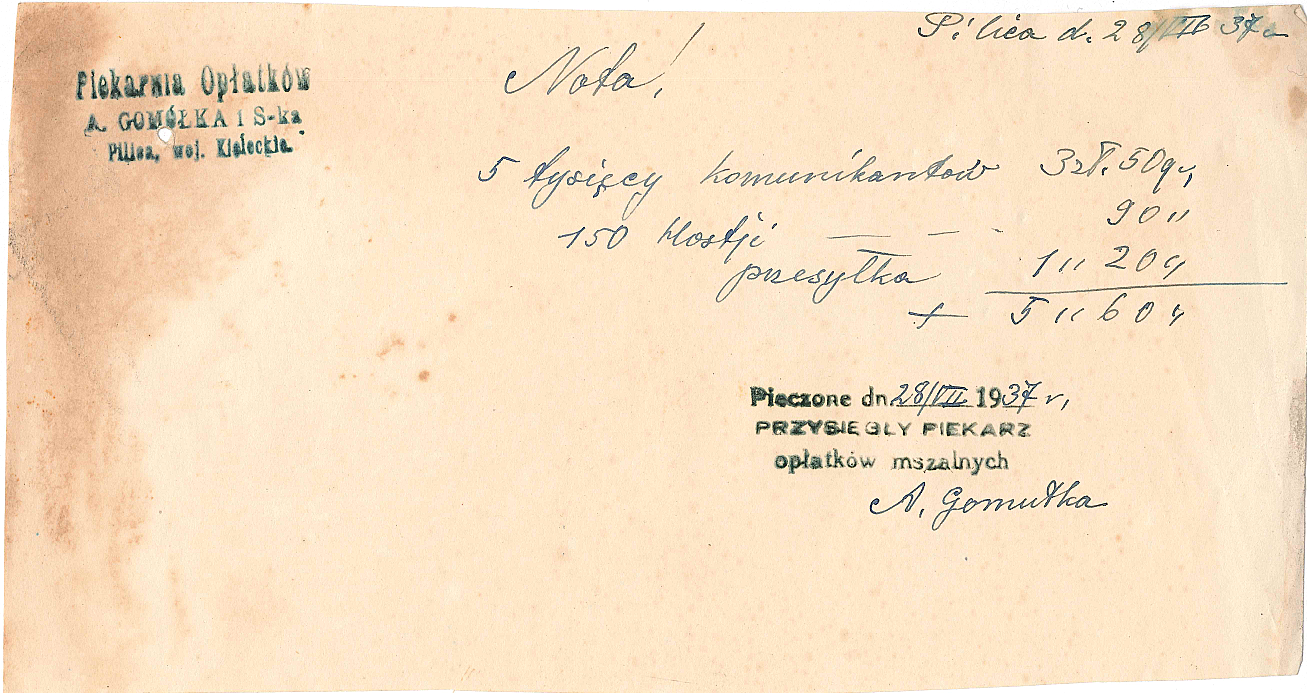 Pilica d. 28/VII 37 r
Piekarnia Opłatków
A. GOMÓŁKA i S-ka
Pilica, woj. Kieleckie.
Nota!
5 tysięcy komunikantów 3 zł. 50 gr,
150 Hostji — — - 90 "
przesyłka 1 " 20 "
+ 5 " 60 "
Pieczone dn 28/VII 1937 r,
PRZYSIĘGŁY PIEKARZ
opłatków mszalnych
A. Gomułka